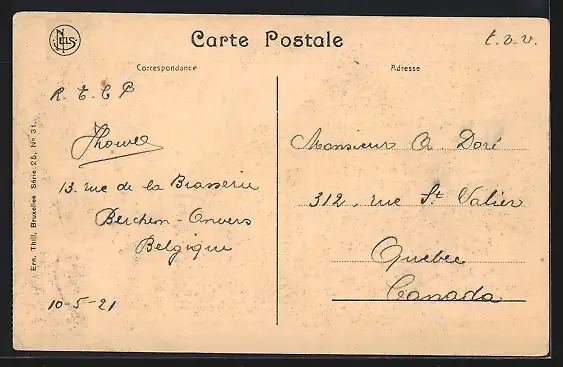 NELS
Carte Postale
t.v.v.
Correspondance
Adresse
R. T. C P
13. rue de la Brasserie
Berchem - Anvers
Belgique
10-5-21
Monsieur A. Doré
312, rue St Valier
Quebec
Canada
Ern. Thill, Bruxelles Série 25, No 31.